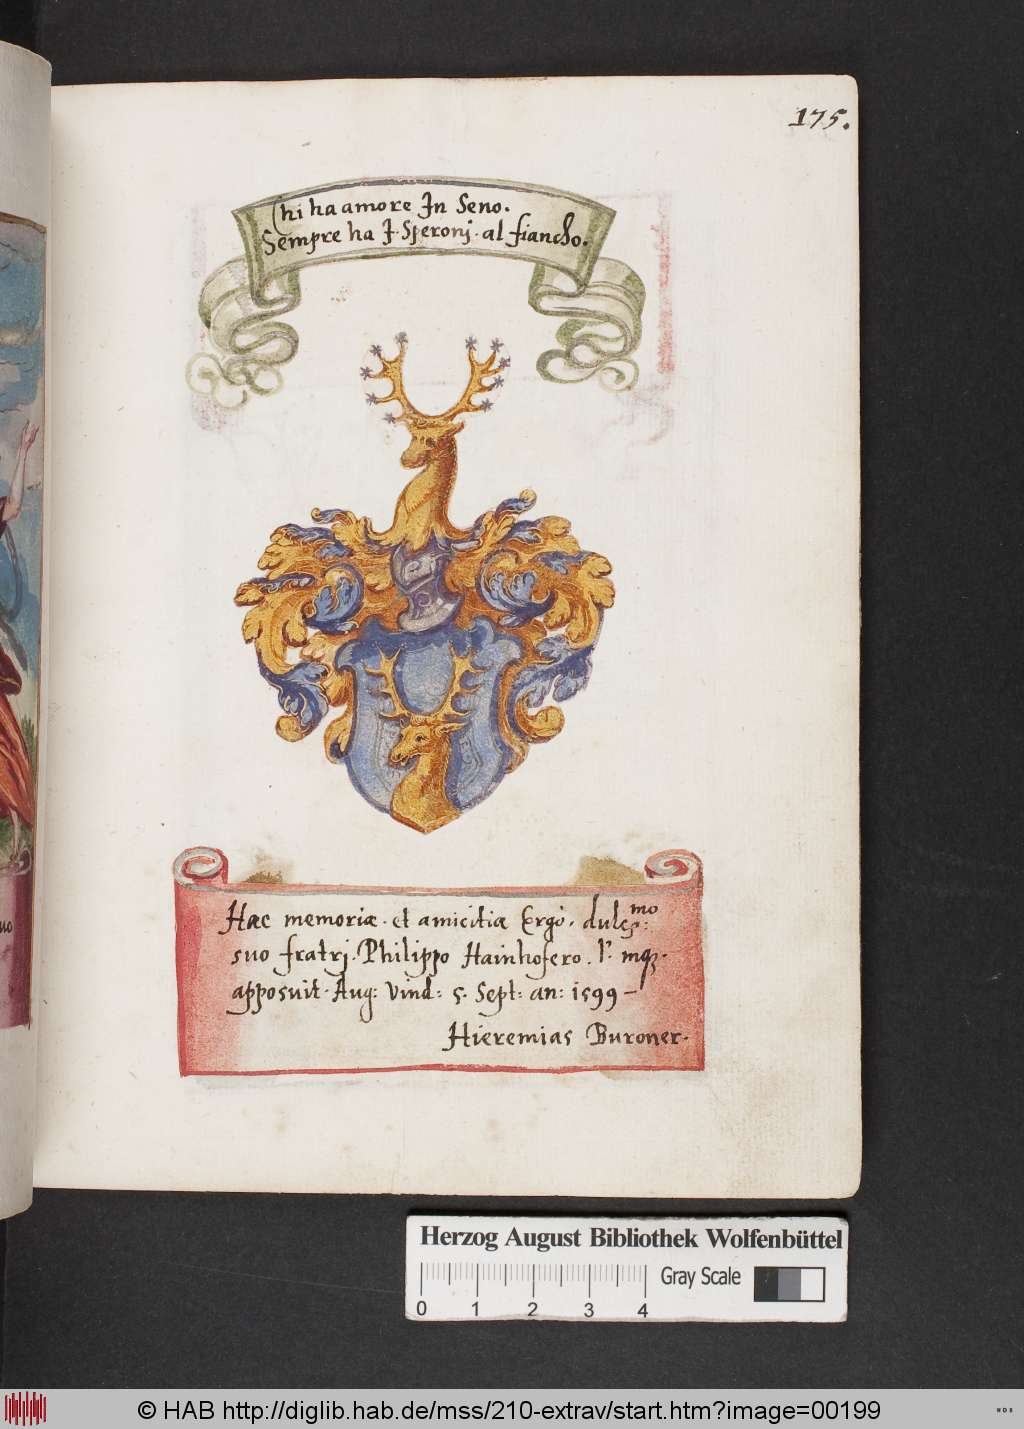 175.
Chi ha amore In Seno.
Sempre ha I. Speronj. al fiancho.
Hac memoriæ. et amicitiæ Ergò. dulcs:mo
suo fratrj. Philippo Hainhofero. l. mq3.
apposuit. Aug: Vind: 5. Sept: an: 1599 –
Hieremias Buroner.
Herzog August Bibliothek Wolfenbüttel
Gray Scale
0 1 2 3 4
© HAB http://diglib.hab.de/mss/210-extrav/start.htm?image=00199